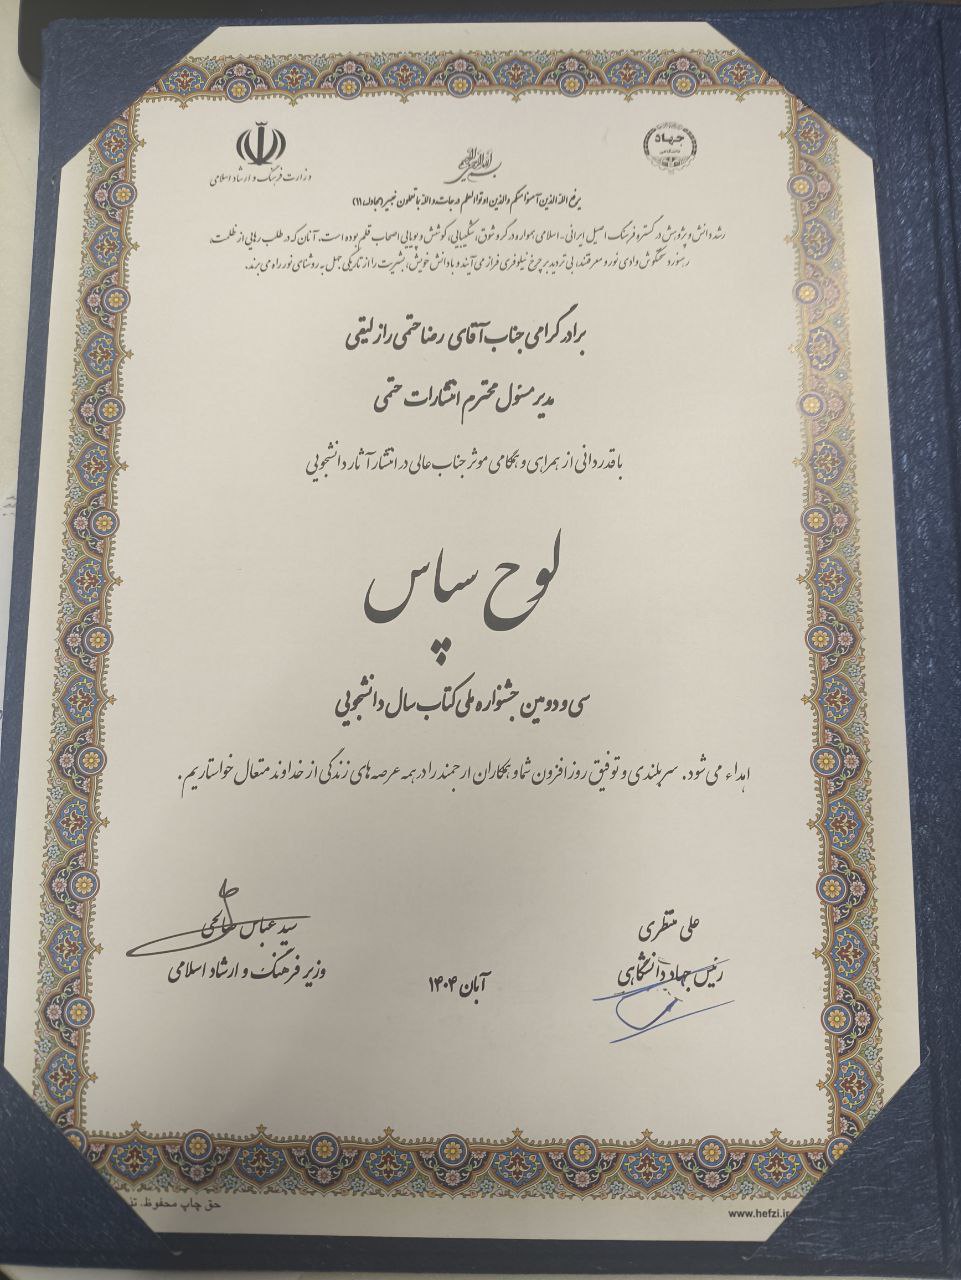 جهاد
دانشگاهی
وزارت فرهنگ و ارشاد اسلامی
بسم الله الرحمن الرحیم
یرفع الله الذین آمنوا منکم والذین اوتوا العلم درجات والله بما تعلمون خبیر (مجادله، ۱۱)
رشد دانش و پژوهش در گستره فرهنگ اصیل ایرانی-اسلامی همواره در گرو شوق، شکیبایی، کوشش و پویایی اصحاب قلم بوده است. آنان که در طلب رهایی از ظلمت،
رهنورد سختکوش وادی نور و معرفتند، بی تردید بر چرخ نیلوفری فراز می آیند و با دانش خویش، بشریت را از تاریکی جهل به روشنای نور راه می برند.
برادر گرامی جناب آقای رضا حتمی رازلیقی
مدیر مسئول محترم انتشارات حتمی
با قدردانی از همراهی و همگامی موثر جناب عالی در انتشار آثار دانشجویی
لوح سپاس
سی و دومین جشنواره ملی کتاب سال دانشجویی
اهداء می شود. سربلندی و توفیق روزافزون شما و همکاران ارجمند را در همه عرصه های زندگی از خداوند متعال خواستاریم.
علی منتظری
رئیس جهاد دانشگاهی
آبان ۱۴۰۴
سید عباس صالحی
وزیر فرهنگ و ارشاد اسلامی
www.hefzi.ir
حق چاپ محفوظ.